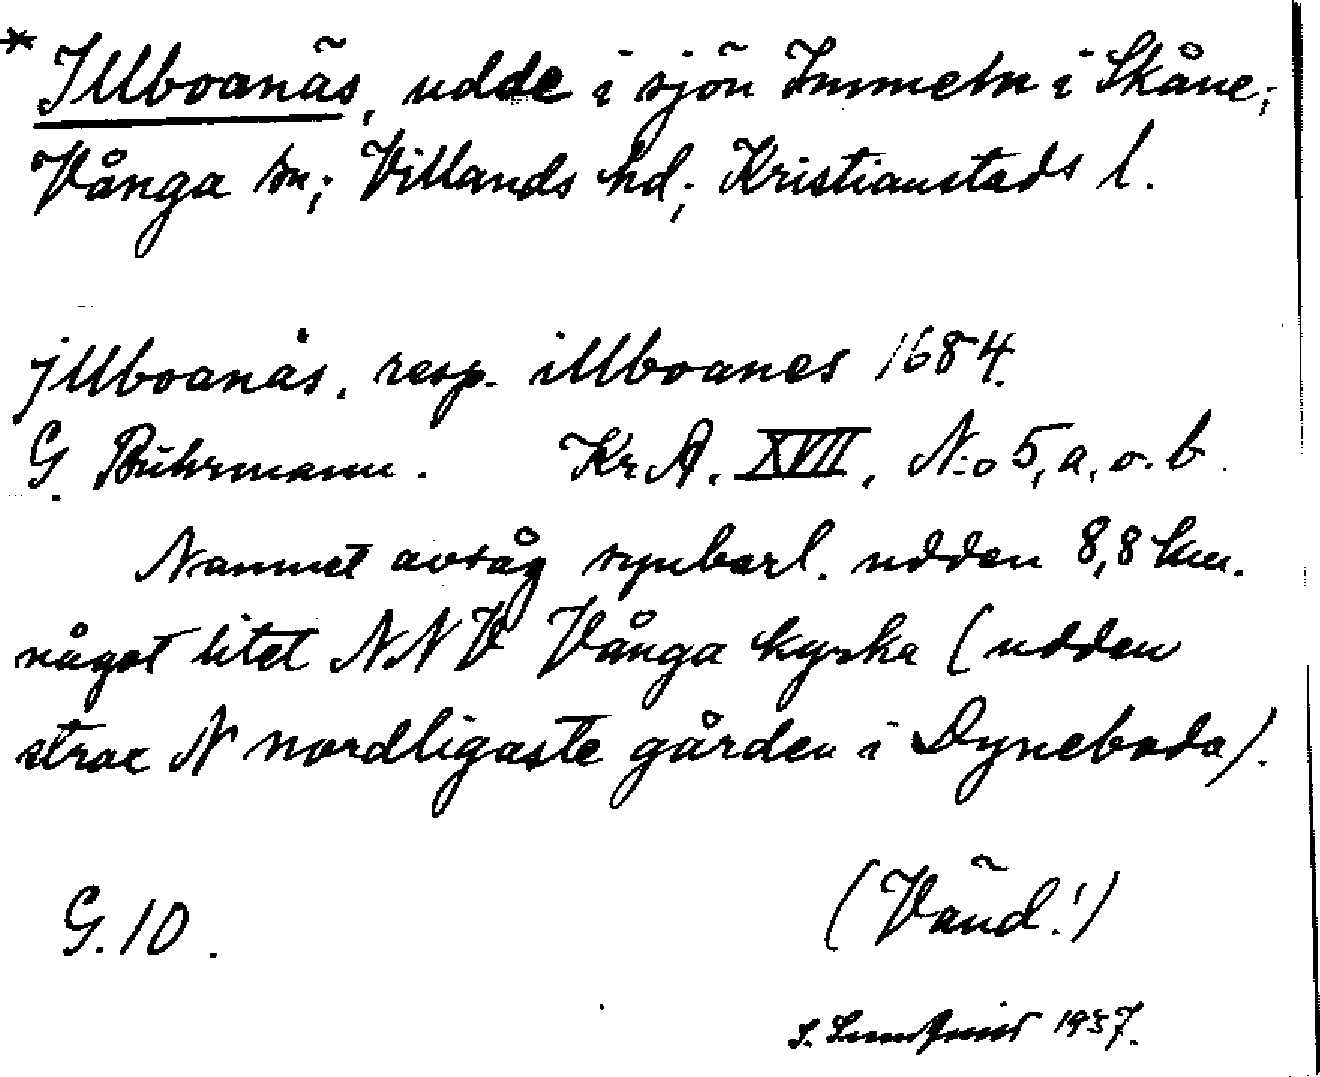 * Illboanäs, udde i sjön Immeln i Skåne;
Vånga sn; Villands hd; Kristianstads l.
jllboanäs, resp. illboanes 1684.
G. Buhrmann. Kr A. XVII, N:o 5, a, o. b.
Namnet avsåg synbarl. udden 8,8 km.
något litet NNV Vånga kyrka (udden
strax N nordligaste gården i Dyneboda).
G. 10.
(Vänd!)
S. Lundqvist 1937.